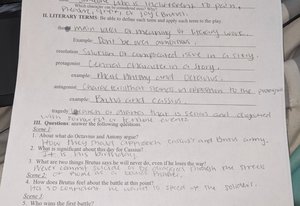 Which
joy (Brutus)
II. LITERARY TERMS: Be able to define each term and apply each term to the play
theme main idea or meaning of literary work.
Example: Dont be over ambitious
resolution Solution of complicated issue in a story.
protagonist Central character in a story.
example: Mark Antony and Octavius.
antagonist Characters that stands in opposition to the protagonist
Example Brutus and Cassius.
tragedy
III. Questions: answer the following questions
Scene 1:
1. About what do Octavius and Antony argue?
How they should approach Cassius and Brutus army.
2. What is significant about the day for Cassius?
It is his birthday.
3. What are two things Brutus says he will never do, even if he loses the war?
Never commit suicide or be through the streets
of Rome as a bound prisoner.
4. How does Brutus feel about the battle at this point?
Has so confident he want to speed up the
Scene 3:
5. Who wins the first battle?